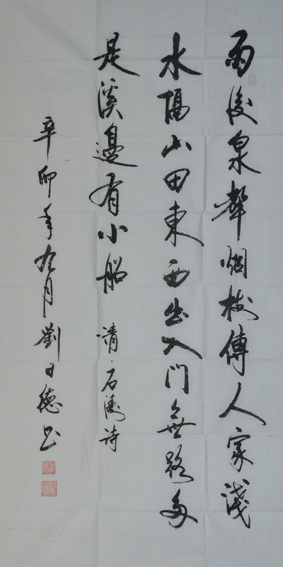 雨後泉聲傳人家淺
水隔山田東西出入門無路多
是溪邊有小船 清·石濤诗
辛卯年九月劉日德书